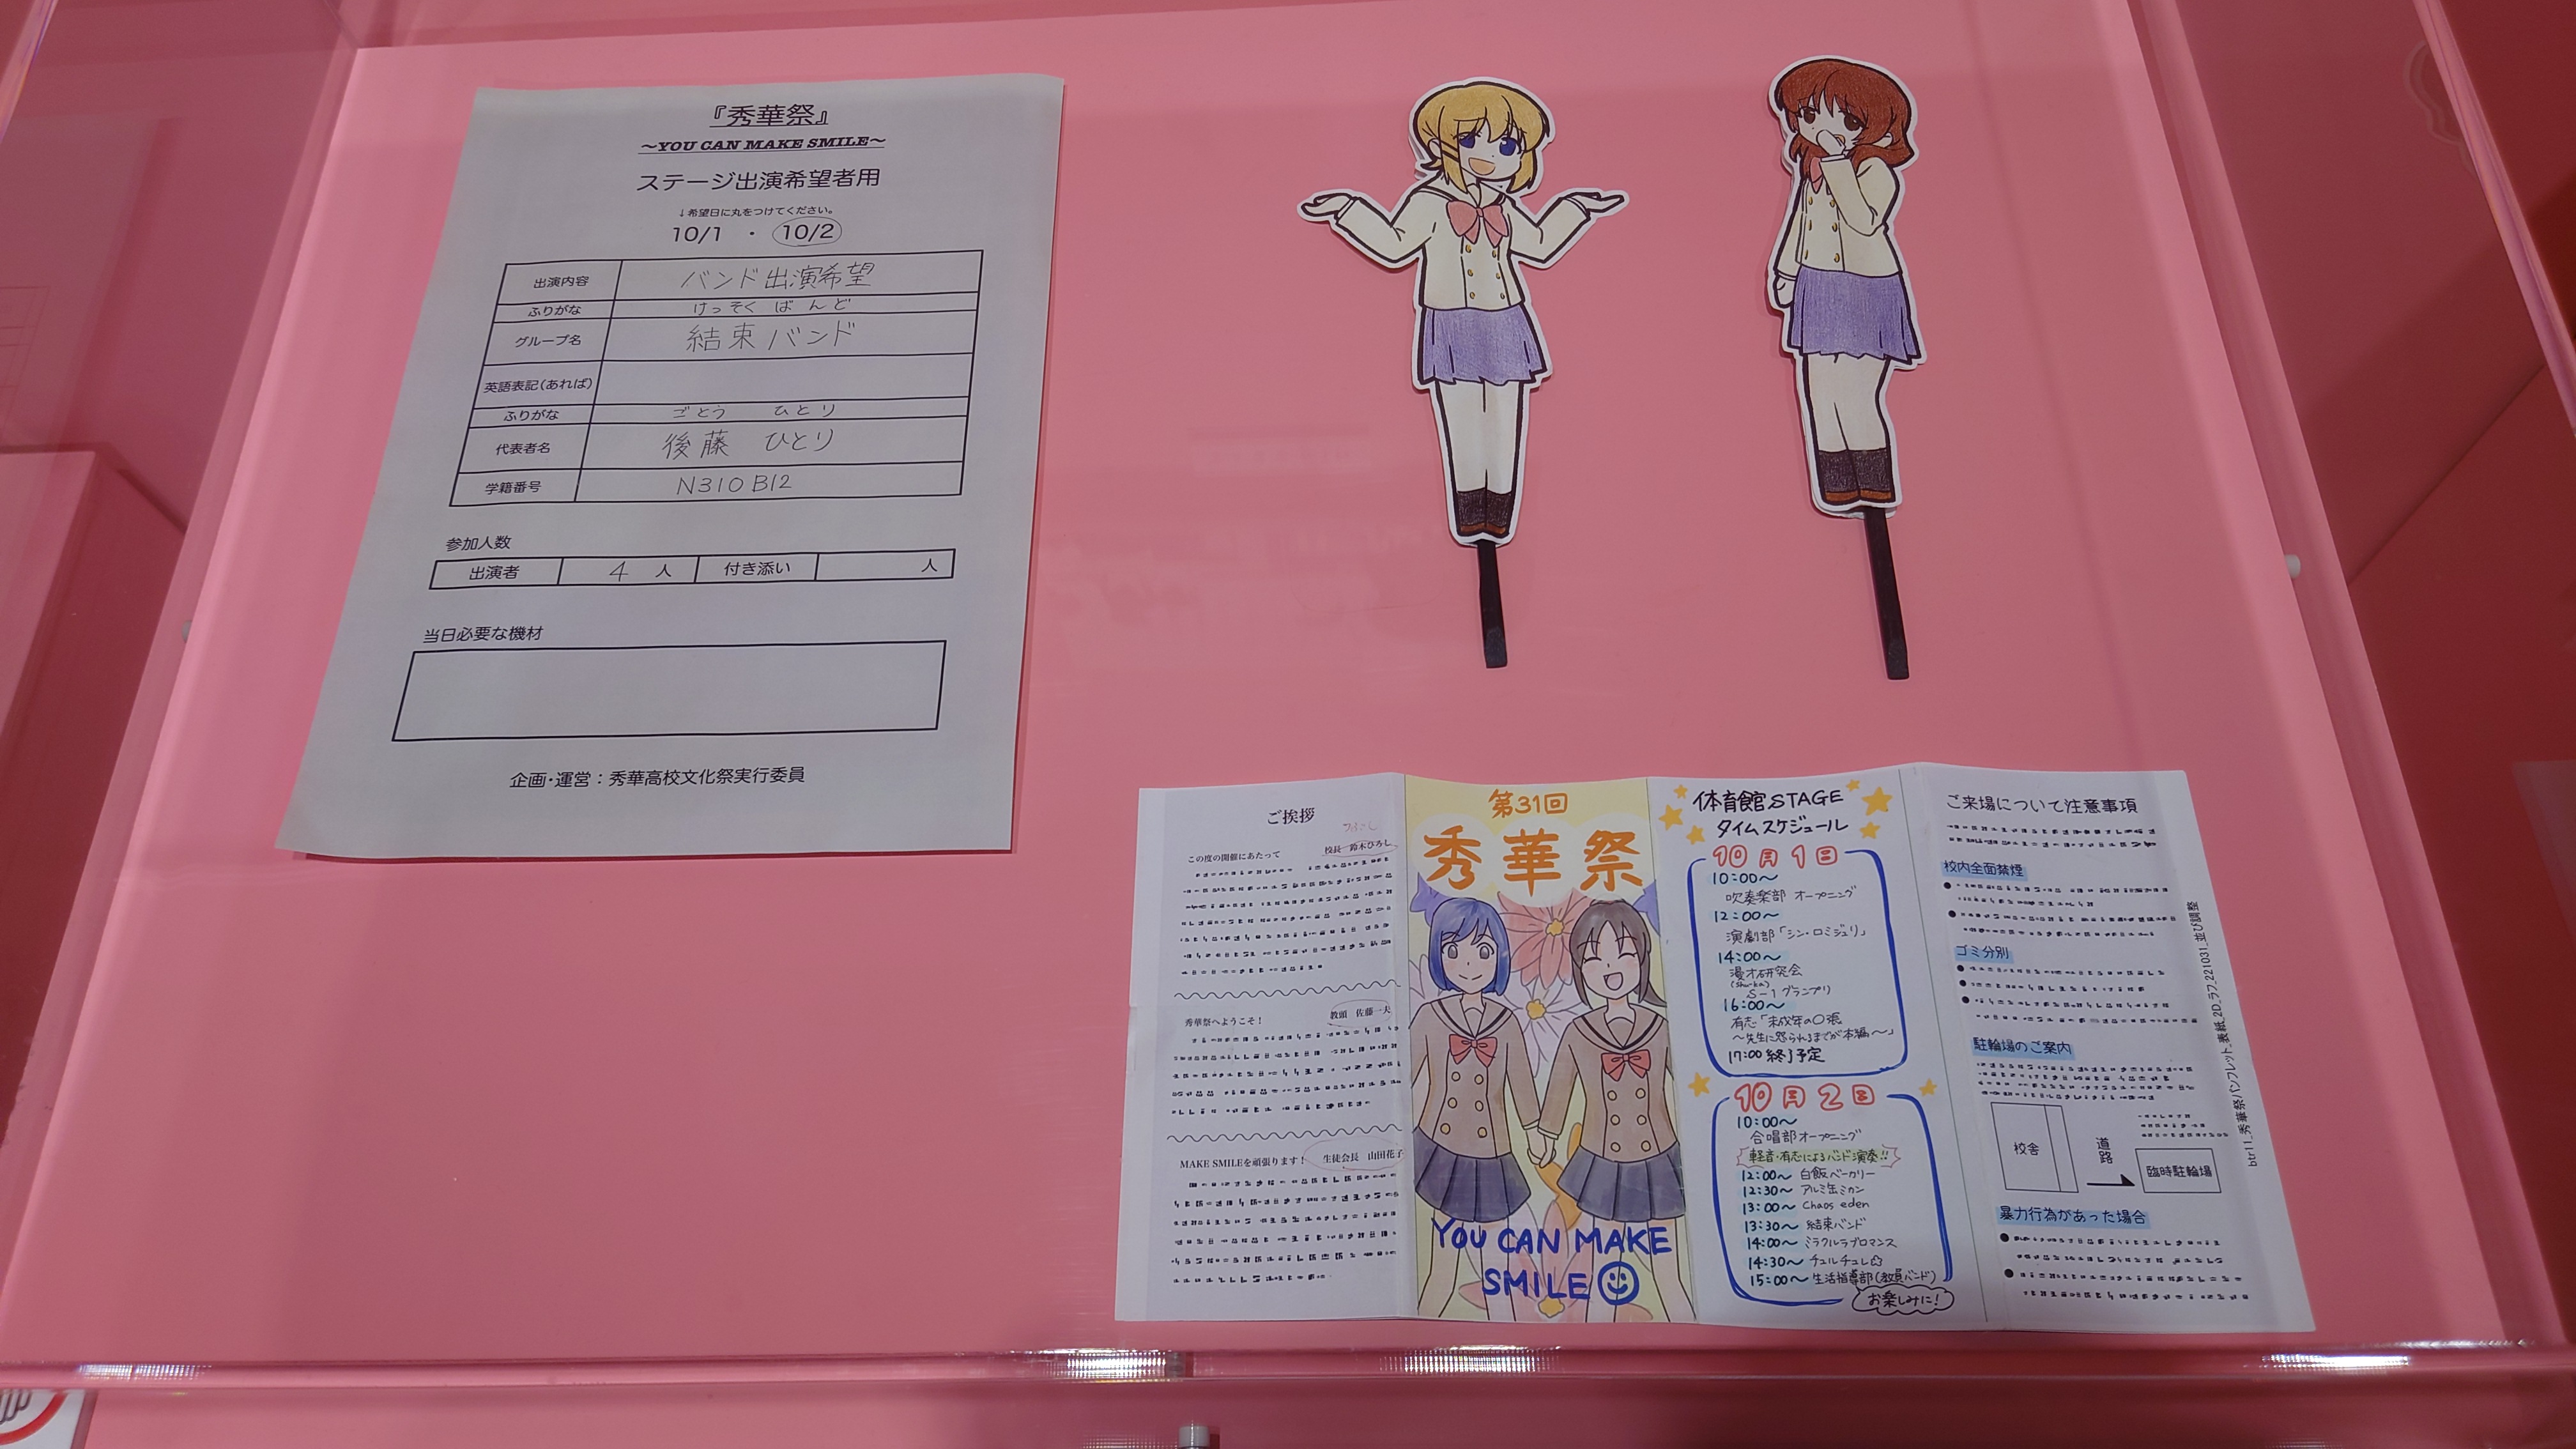 『秀華祭』
～YOU CAN MAKE SMILE～
ステージ出演希望者用
↓希望日に丸をつけてください。
10/1 ・ 10/2
出演内容 バンド出演希望
ふりがな けっそく ばんど
グループ名 結束バンド
英語表記(あれば)
ふりがな ごとう ひとり
代表者名 後藤 ひとり
学籍番号 N310B12
参加人数
出演者 4 人 付き添い 人
当日必要な機材
企画・運営：秀華高校文化祭実行委員
ご挨拶
この度の開催にあたって
校長 鈴木ひろし
秀華祭へようこそ！
教頭 佐藤一夫
MAKE SMILEを頑張ります！ 生徒会長 山田花子
第31回
秀華祭
YOU CAN MAKE
SMILE
体育館STAGE
タイムスケジュール
10月1日
10:00～
吹奏楽部 オープニング
12:00～
演劇部「シン・ロミジュリ」
14:00～
漫才研究会
S-1グランプリ
16:00～
有志「未成年の〇張
～先生に怒られるまでが本編～」
17:00 終了予定
10月2日
10:00～
合唱部オープニング
軽音・有志によるバンド演奏!!
12:00～ 白飯ベーカリー
12:30～ アルミ缶ミカン
13:00～ Chaos eden
13:30～ 結束バンド
14:00～ ミラクルラブロマンス
14:30～ チュルチュレ☆
15:00～ 生活指導部(教員バンド)
お楽しみに!
ご来場について注意事項
校内全面禁煙
ゴミ分別
駐輪場のご案内
校舎
道路
臨時駐輪場
暴力行為があった場合
btr11_秀華祭パンフレット_表紙_2D_ラフ_221031_並び調整